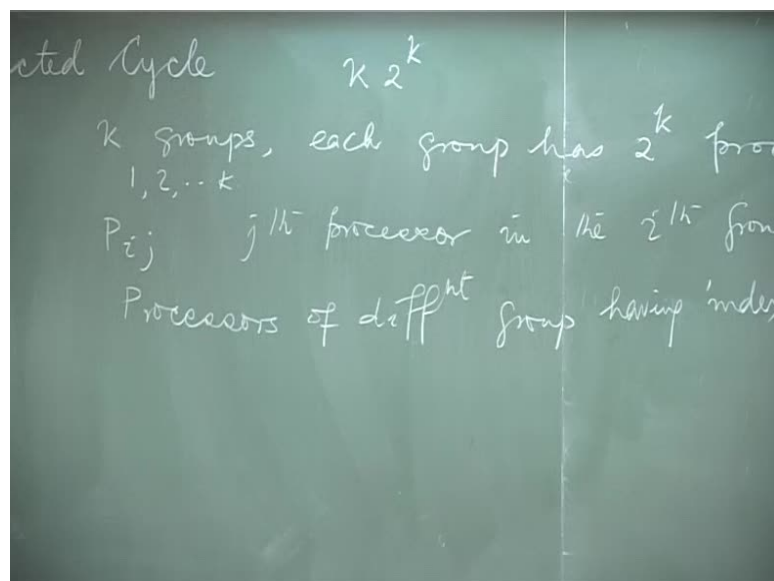 cted Cycle K 2^k
K groups, each group has 2^k proc
1, 2, .. k
P_ij jth processor in the ith grou
Processors of diff^nt group having index